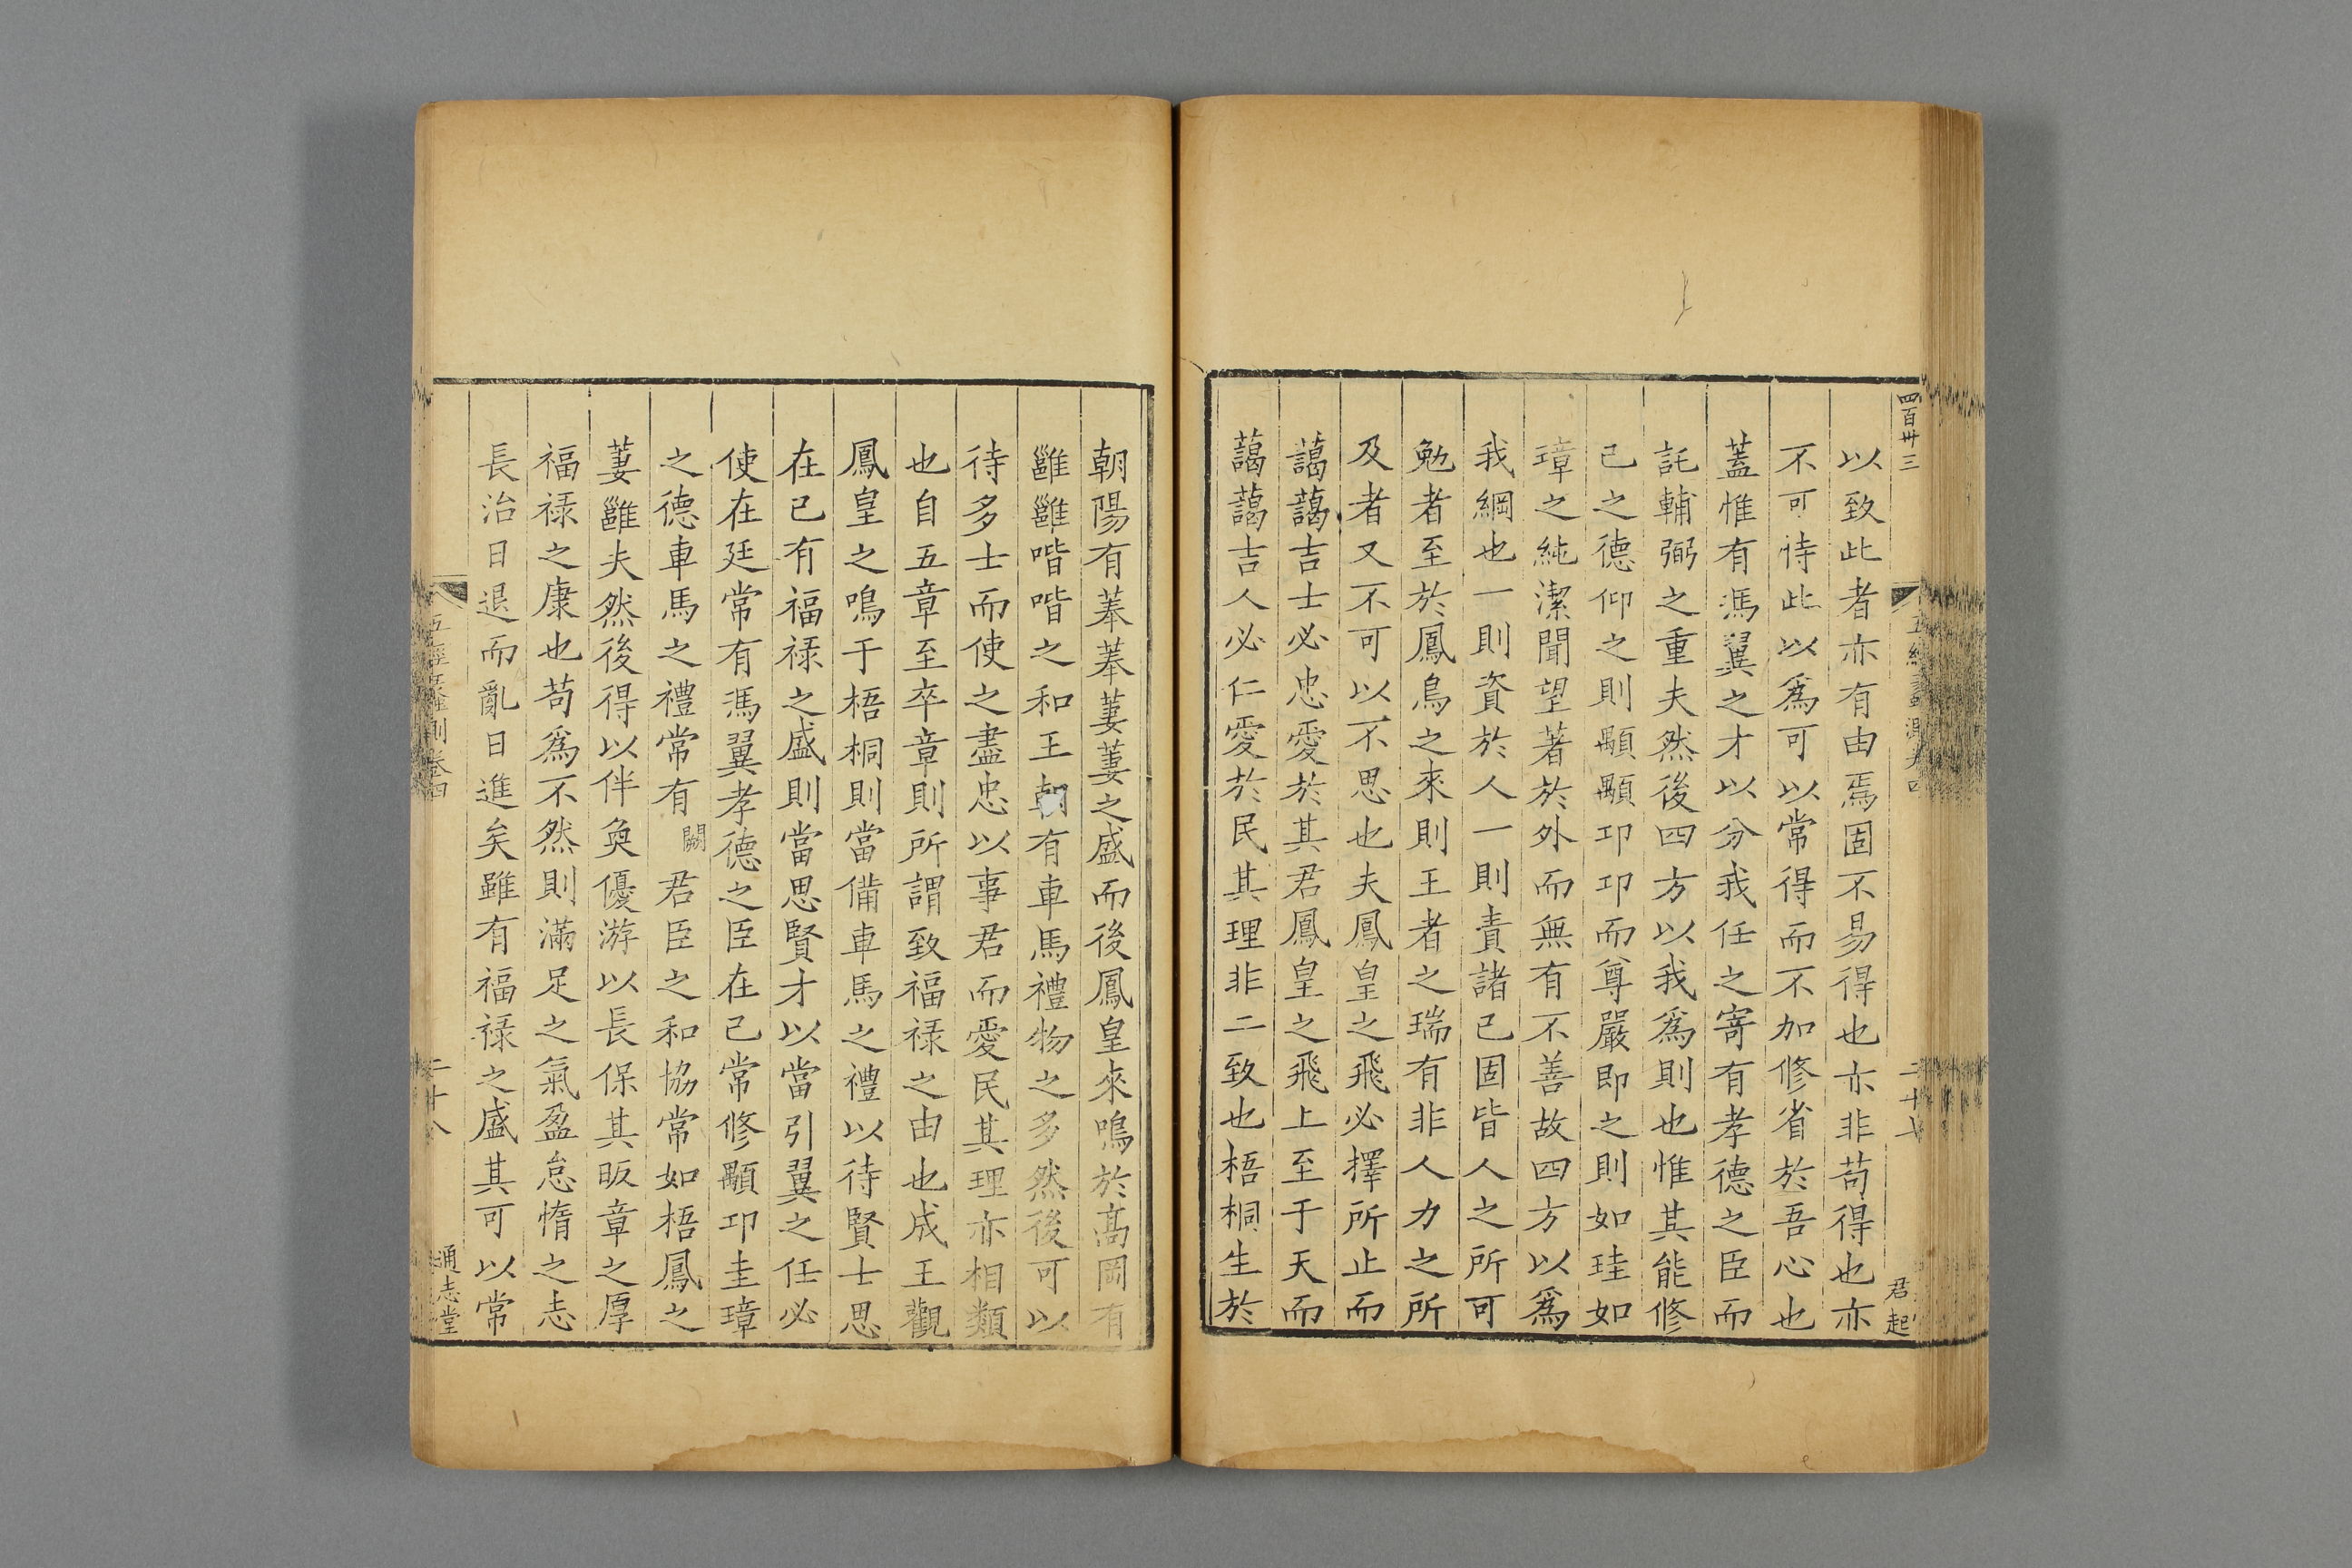 四百卅三
以致此者亦有由焉固不易得也亦非苟得也亦
不可恃此以爲可以常得而不加修省於吾心也
蓋惟有馮翼之才以分我任之寄有孝德之臣而
託輔弼之重夫然後四方以我爲則也惟其能修
己之德仰之則顒顒卬卬而尊嚴即之則如珪如
璋之純潔聞望著於外而無有不善故四方以爲
我綱也一則資於人一則責諸己固皆人之所可
勉者至於鳳鳥之來則王者之瑞有非人力之所
及者又不可以不思也夫鳳皇之飛必擇所止而
藹藹吉士必忠愛於其君鳳皇之飛上至于天而
藹藹吉人必仁愛於民其理非二致也梧桐生於
二十七
君起
朝陽有菶菶萋萋之盛而後鳳皇來鳴於高岡有
雝雝喈喈之和王朝有車馬禮物之多然後可以
待多士而使之盡忠以事君而愛民其理亦相類
也自五章至卒章則所謂致福祿之由也成王觀
鳳皇之鳴于梧桐則當備車馬之禮以待賢士思
在己有福祿之盛則當思賢才以當引翼之任必
使在廷常有馮翼孝德之臣在己常修顒卬圭璋
之德車馬之禮常有闕君臣之和協常如梧鳳之
萋雝夫然後得以伴奐優游以長保其昄章之厚
福祿之康也苟爲不然則滿足之氣盈怠惰之志
長治日退而亂日進矣雖有福祿之盛其可以常
五經蠡測卷四
二十八
通志堂